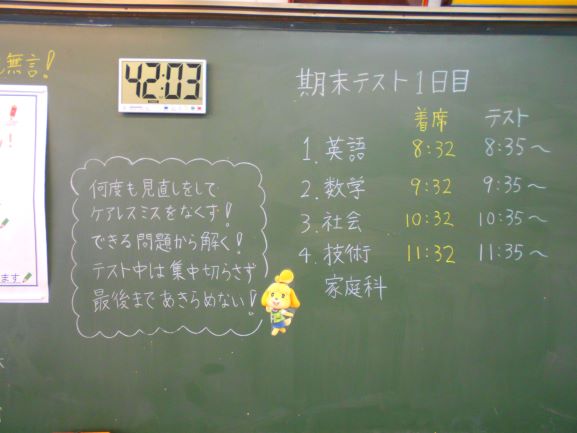 無言!
42:03
期末テスト1日目
着席 テスト
1. 英語 8:32 8:35～
2. 数学 9:32 9:35～
3. 社会 10:32 10:35～
4. 技術 11:32 11:35～
家庭科
何度も見直しをして
ケアレスミスをなくす!
できる問題から解く!
テスト中は集中切らさず
最後まであきらめない!
ます